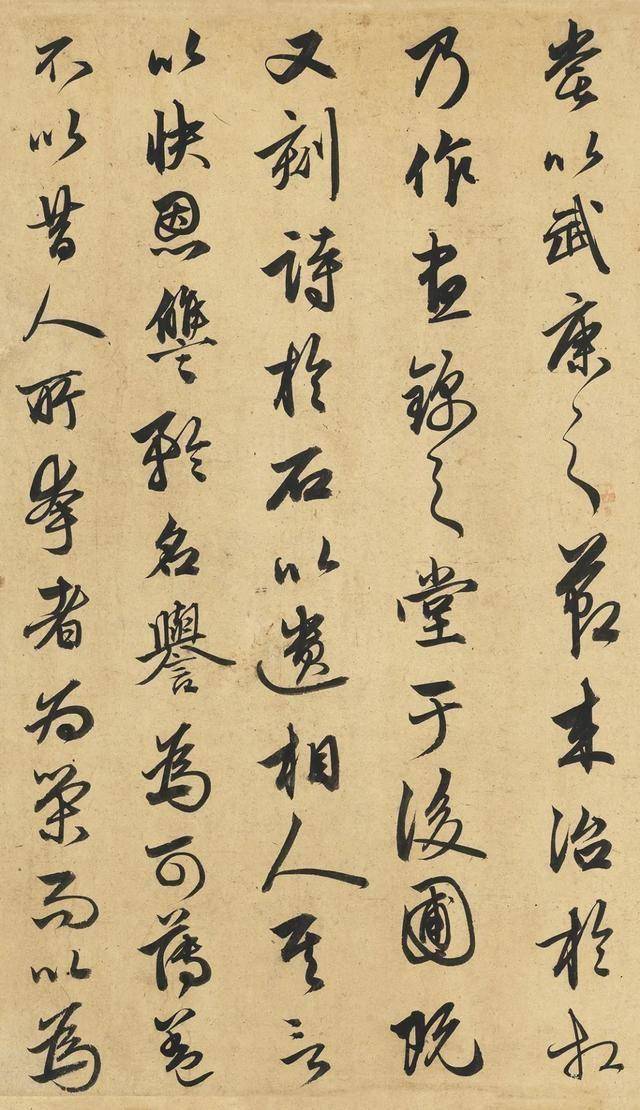 嘗以武康之節来治於相
乃作畫錦之堂于後圃既
又刻詩於石以遺相人其言
以快恩讐矜名譽為可薄蓋
不以昔人所夸者為榮而以為